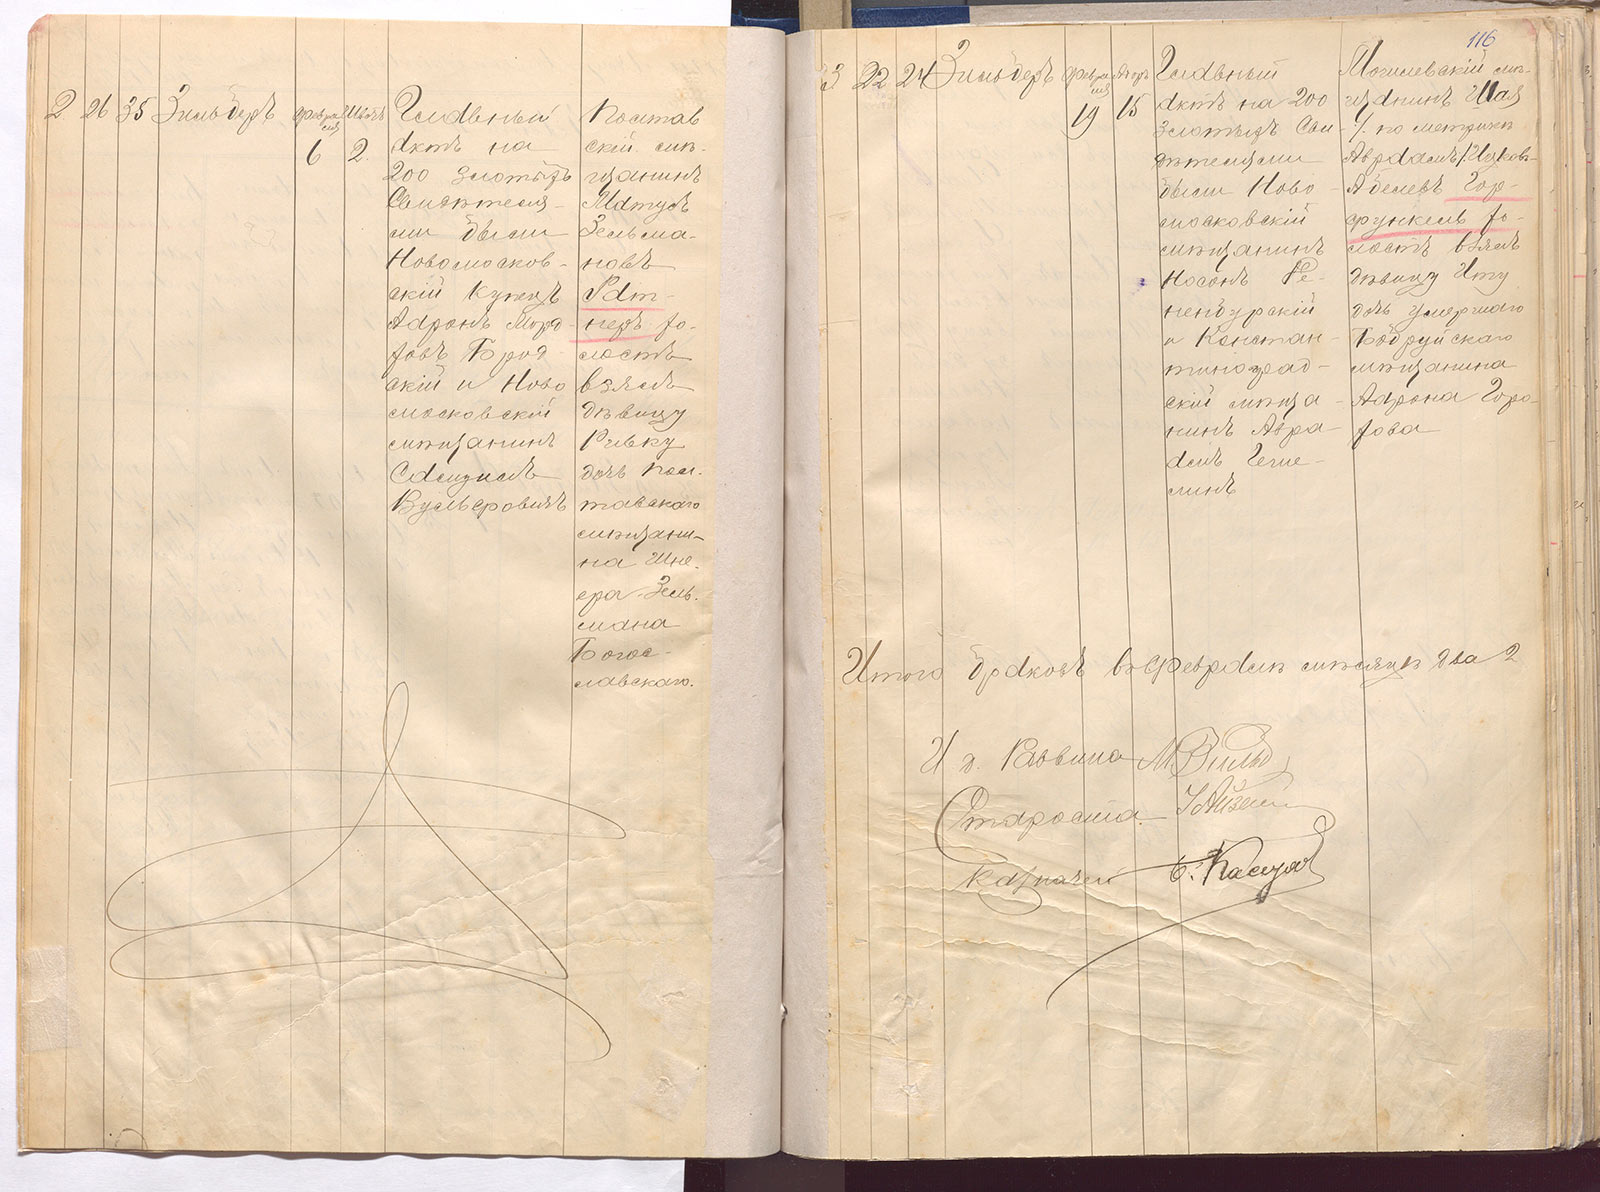 2 26 35 Зильберъ февра Шватъ
ля
6 2
Главный
Актъ на
200 злотыхъ
Свидѣтеля-
ми были
Новомосков-
скій Купецъ
Ааронъ Морд-
ховъ Брод-
скій и Ново
московскій
мѣщанинъ
Самуилъ
Вульфовичъ
Постав
скій мѣ-
щанинъ
Матусъ
Зельма-
новъ
Рат-
неръ хо-
лостъ
взялъ
дѣвицу
Ривку
дочь Пос-
тавскаго
мѣщани-
на Шне-
ера Зель-
мана
Богос-
лавскаго.
116
3 22 24 Зильберъ февра Адаръ
ля
19 15
Главный
Актъ на 200
злотыхъ Сви-
дѣтелями
были Ново-
московскій
мѣщанинъ
Носонъ Ре-
пендурскій
и Констан-
тиноград-
скій мѣща-
нинъ Авра-
амъ
линъ
Могилевскій мѣ-
щанинъ Шая
/: по метрики
Авраамъ/Ицковъ-
Абелевъ Гор-
функель хо-
лостъ взялъ
дѣвицу Иту
дочь умершаго
Бобруйскаго
мѣщанина
Аарона Горо-
хова
Итого браковъ въ Февралѣ мѣсяцѣ два 2
И д. Раввина М Вильд
Староста
Казначей